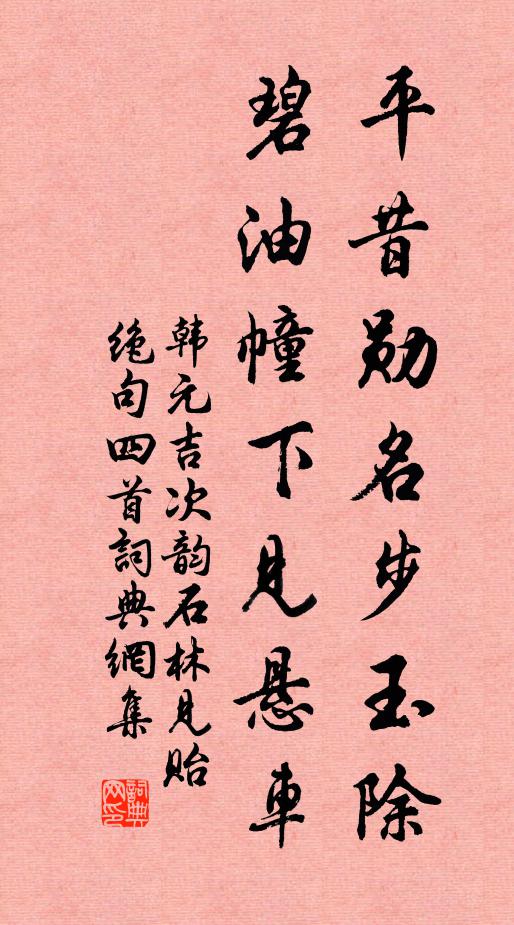 平昔勋名步玉除
碧油幢下见悬車
韩元吉次韵石林见贻
绝句四首詞典網集
詞典网印